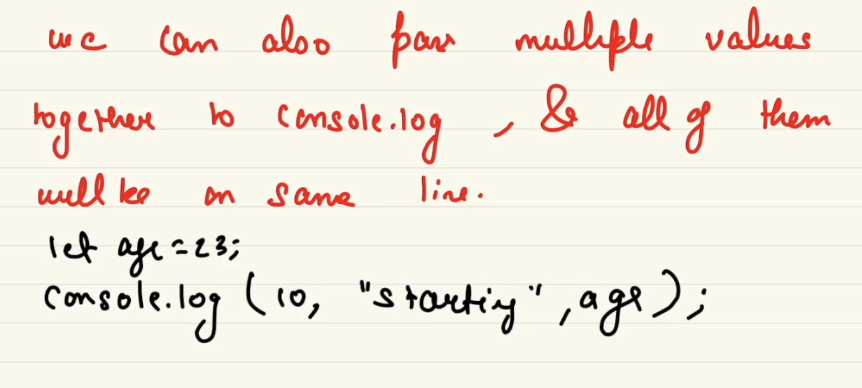 we can also pass multiple values
together to console.log , & all of them
will be on same line.
let age=23;
console.log (10, "starting" , age);